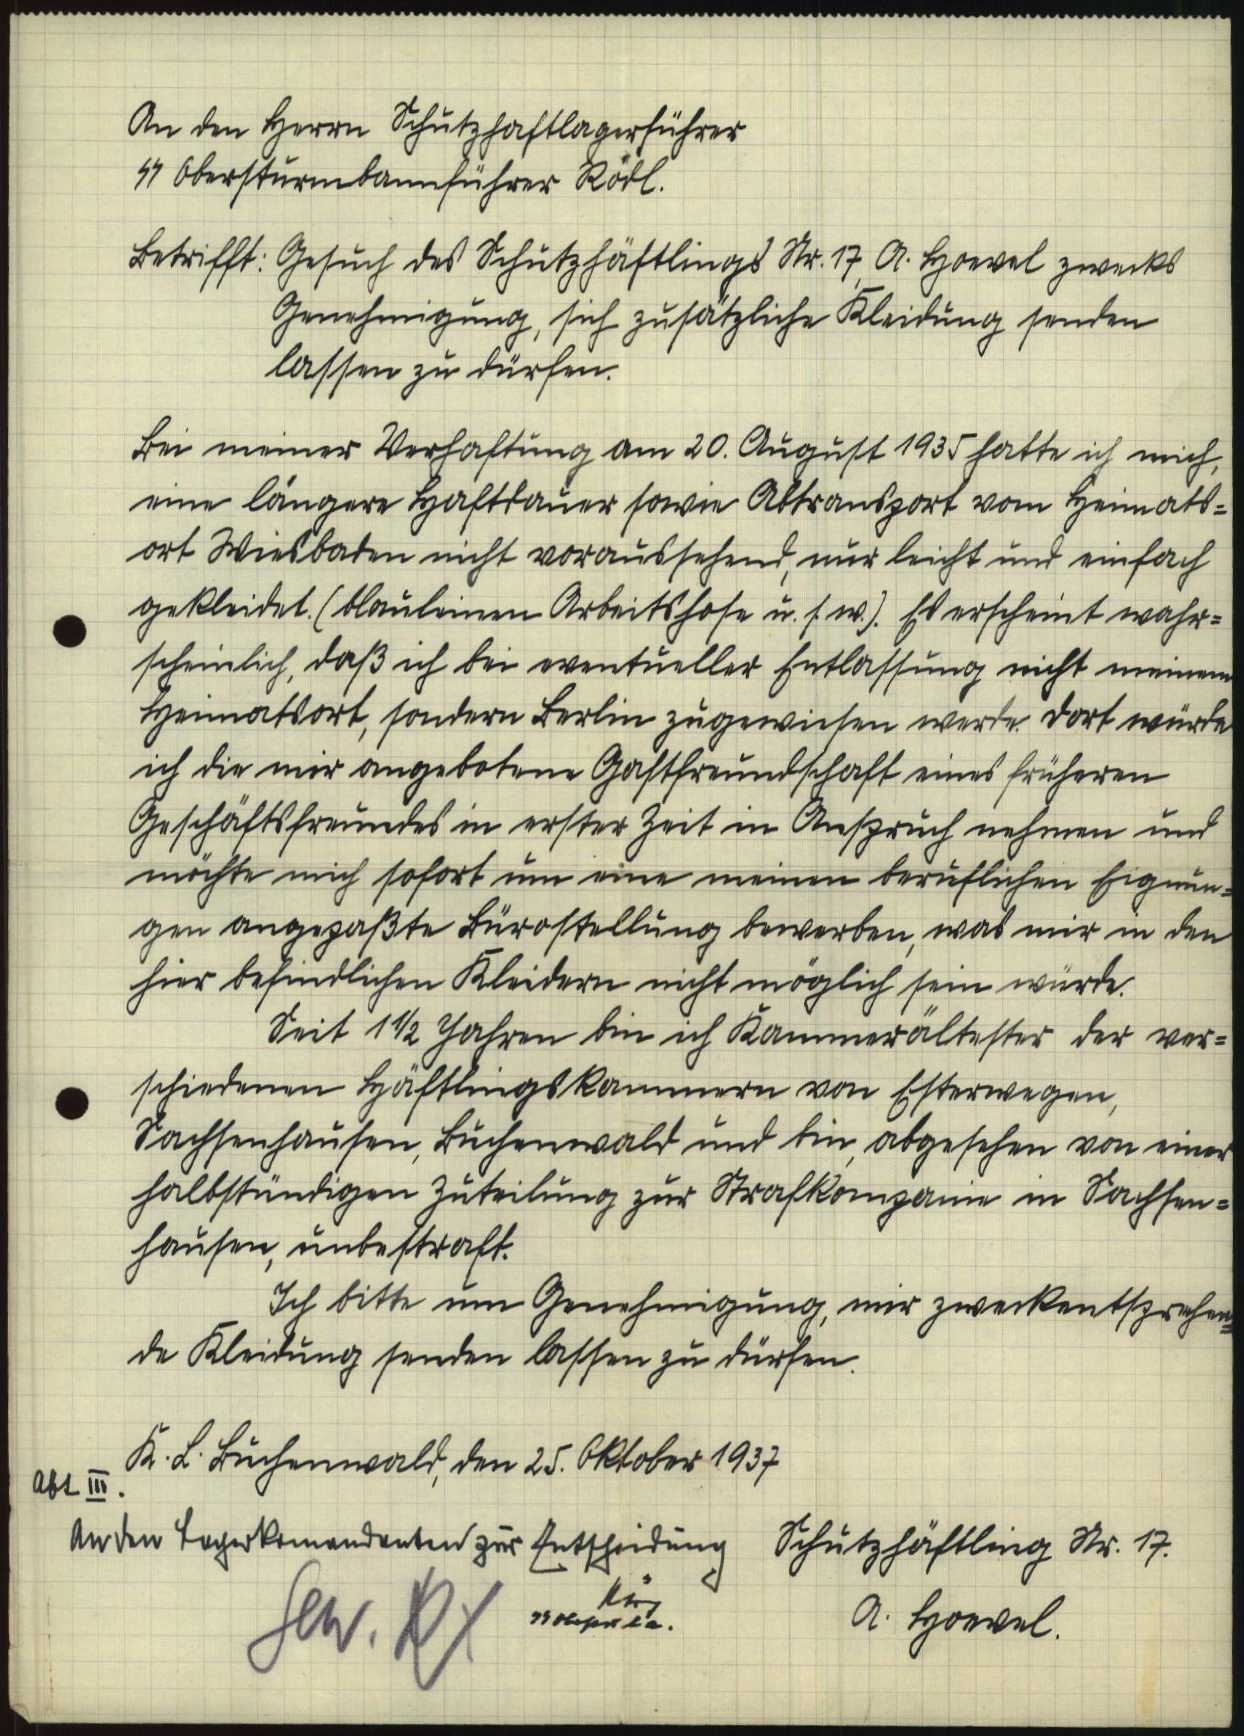 An den Herrn Schutzhaftlagerführer
SS Obersturmbannführer Rödl.
Betrifft: Gesuch des Schutzhäftlings Nr. 17, A. Hoevel zwecks
Genehmigung, sich zusätzliche Kleidung senden
lassen zu dürfen.
Bei meiner Verhaftung am 20. August 1935 hatte ich mich,
eine längere Haftdauer sowie Abtransport vom Heimats=
ort Wiesbaden nicht voraussehend, nur leicht und einfach
gekleidet. (blauleinen Arbeitshose u. s. w.). Es erscheint wahr=
scheinlich, daß ich bei eventueller Entlassung nicht meinem
Heimatsort, sondern Berlin zugewiesen werde. Dort würde
ich die mir angebotene Gastfreundschaft eines früheren
Geschäftsfreundes in erster Zeit in Anspruch nehmen und
möchte mich sofort um eine meinen beruflichen Eignun=
gen angepaßte Bürostellung bewerben, was mir in den
hier befindlichen Kleidern nicht möglich sein würde.
Seit 1 1/2 Jahren bin ich Kammerältester der ver=
schiedenen Häftlingskammern von Esterwegen,
Sachsenhausen, Buchenwald und bin, abgesehen von einer
halbstündigen Zuteilung zur Strafkompanie in Sachsen=
hausen, unbestraft.
Ich bitte um Genehmigung, mir zweckentsprechen=
de Kleidung senden lassen zu dürfen.
K. L. Buchenwald, den 25. Oktober 1937
Abt III.
An den Lagerkomandanten zur Entscheidung
Schutzhäftling Nr. 17.
A. Hoevel.
Gen.